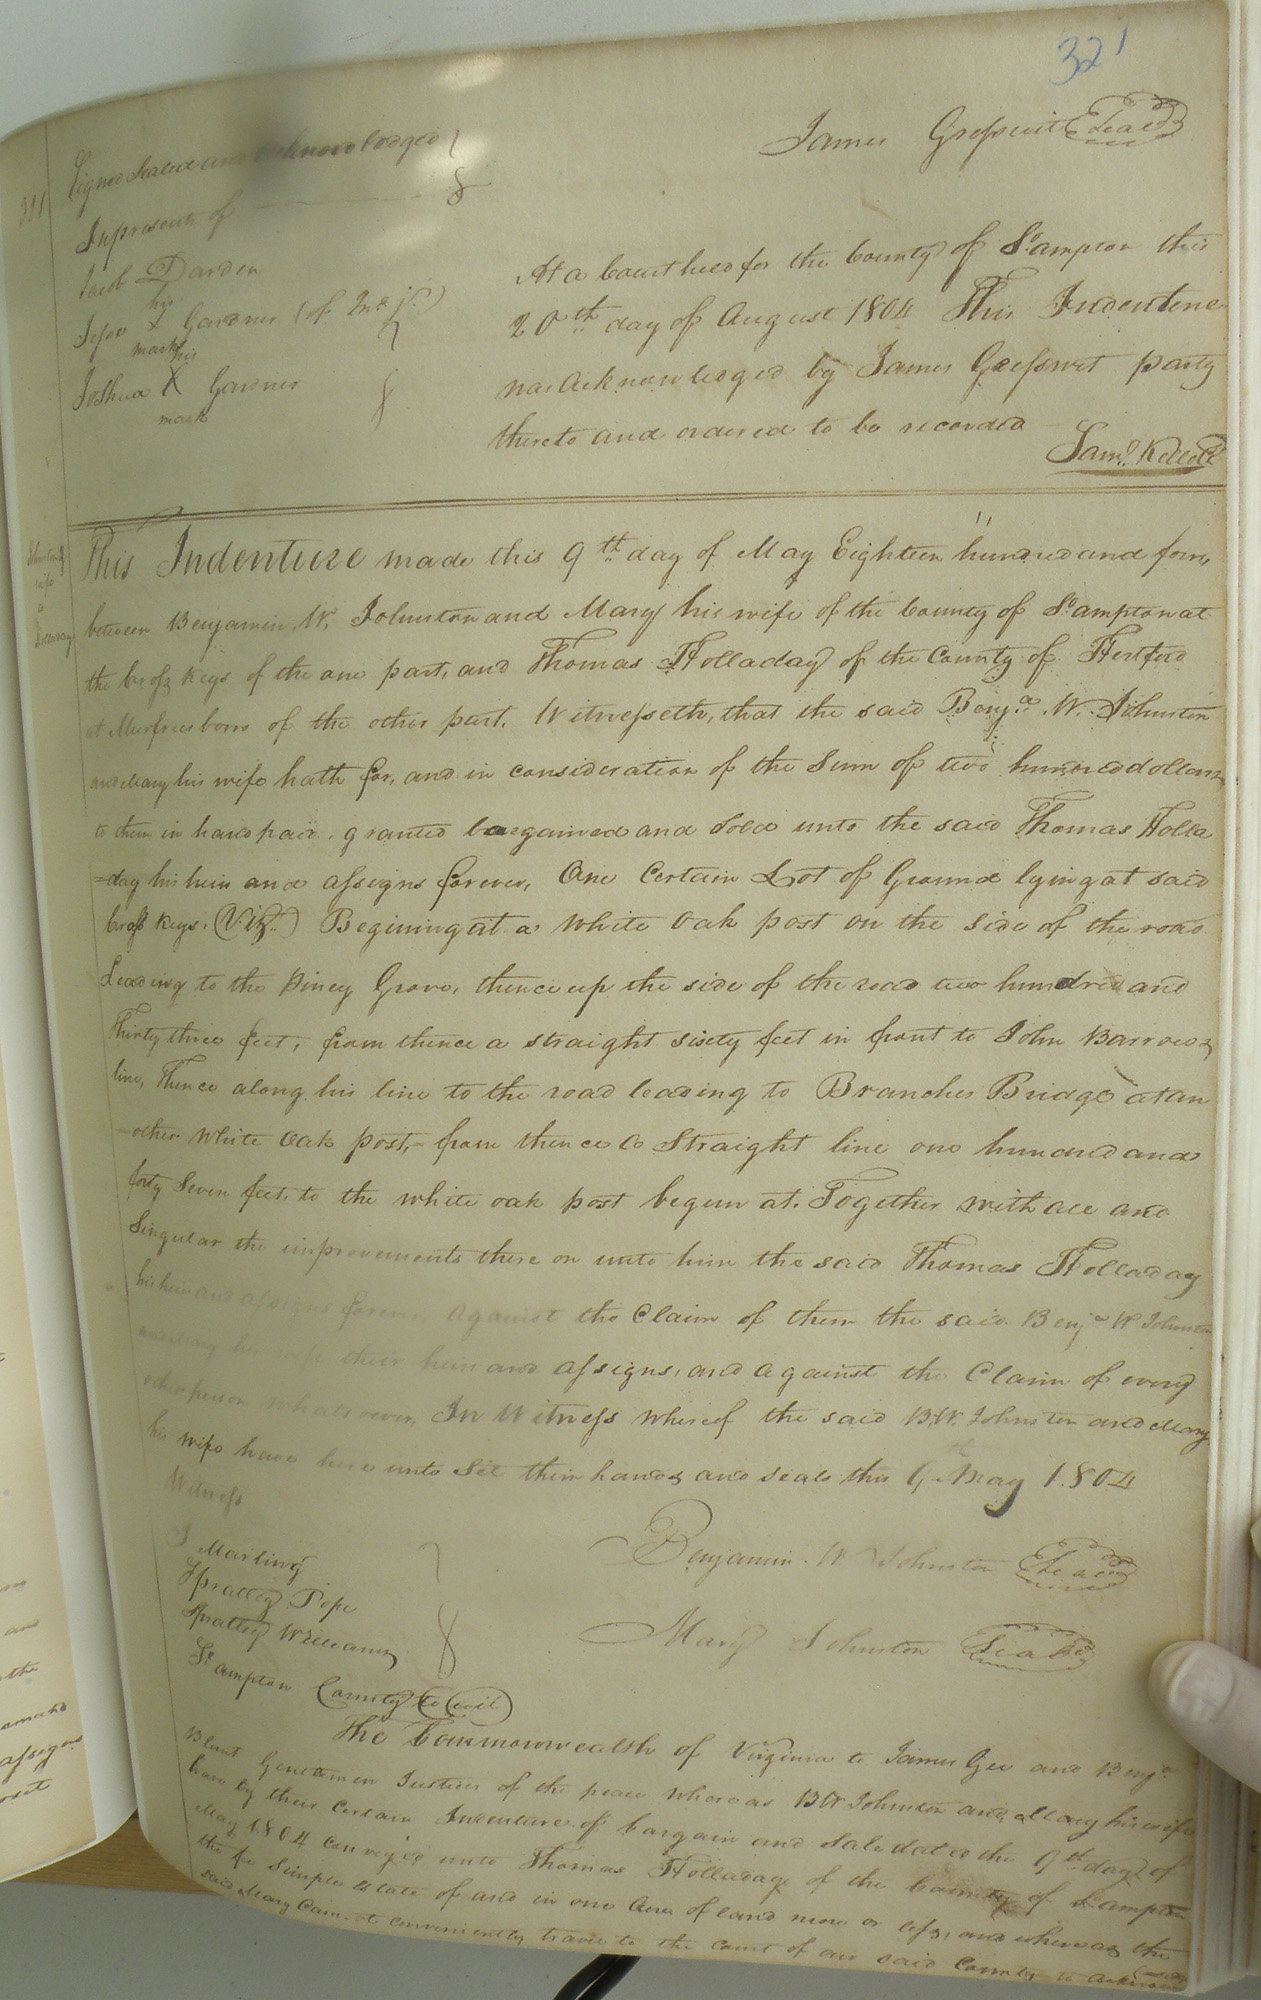 321
James Gresswit Seal
321
Signed Sealed and acknowledged
In presence of
Jacob Darden
his
Gardner (of Jns. jr.)
mark
his
Joshua X Gardner
mark
At a Court held for the County of So.ampton this
20th day of August 1804 This Indenture
was acknowledged by James Gresswit party
thereto and ordered to be recorded
Saml. Kello C
This Indenture made this 9th day of May Eighteen hundred and four,
between Benjamin W. Johnston and Mary his wife of the County of So.ampton at
the Cross Keys of the one part, and Thomas Holladay of the County of Hertford
at Murfreesboro of the other part, Witnesseth, that the said Benja. W. Johnston
and Mary his wife hath for, and in consideration of the Sum of two hundred dollars,
to them in hand paid, granted bargained and Sold unto the said Thomas Holla
=day his heirs and assigns forever, One Certain Lot of Ground lying at said
Cross Keys. (Vizt.) Begining at a White Oak post on the side of the road
Leading to the Piney Grove, thence up the side of the road two hundred and
Thirty three feet, from thence a straight sixty feet in front to John Barrows
line, Thence along his line to the road leading to Branches Bridge at an
-other White Oak post,- from thence a Straight line one hundred and
forty Seven feet, to the white oak post begun at. Together with all and
Singular the improvements there on unto him the said Thomas Holladay
his heirs and assigns forever, Against the Claim of them the said Benja W Johnston
and Mary his wife their heirs and assigns, and against the Claim of every
other person whatsoever, In Witness whereof the said B.W. Johnston and Mary
his wife have here unto Set their hands and seals this 9th May 1804
Witness
J Marling
Spratley Pope
Spratley Williams
Benjamin W Johnston Seal
Mary Johnston Seal
So.ampton County to Wit
The Commonwealth of Virginia to James Gee and Benja.
Blunt Gentlemen Justices of the peace Whereas BW Johnston and Mary his wife
have by their Certain Indenture of bargain and Sale dated the 9th day of
May 1804 conveyed unto Thomas Holladay of the County of So.ampton
the fee Simple Estate of and in one Acre of land more or less, and whereas the
said Mary Cannot conveniently travel to the Court of our said County to acknow